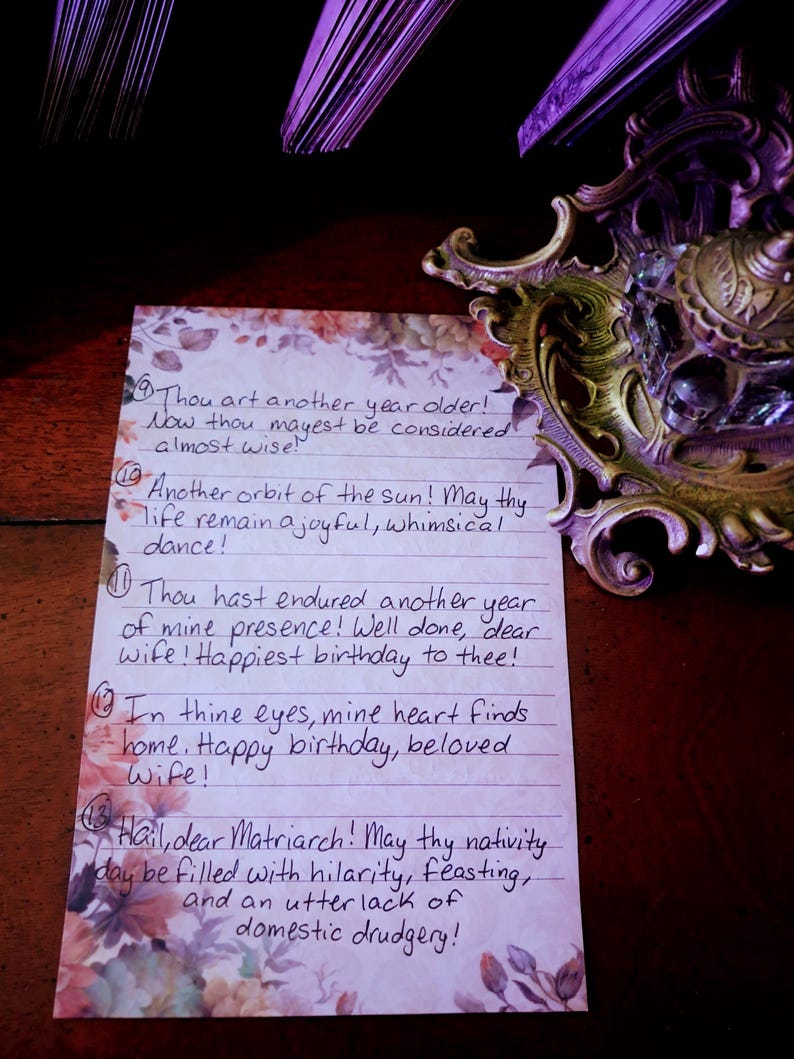 9 Thou art another year older!
Now thou mayest be considered
almost wise!
10 Another orbit of the sun! May thy
life remain a joyful, whimsical
dance!
11 Thou hast endured another year
of mine presence! Well done, dear
wife! Happiest birthday to thee!
12 In thine eyes, mine heart finds
home. Happy birthday, beloved
wife!
13 Hail, dear Matriarch! May thy nativity
day be filled with hilarity, feasting,
and an utter lack of
domestic drudgery!